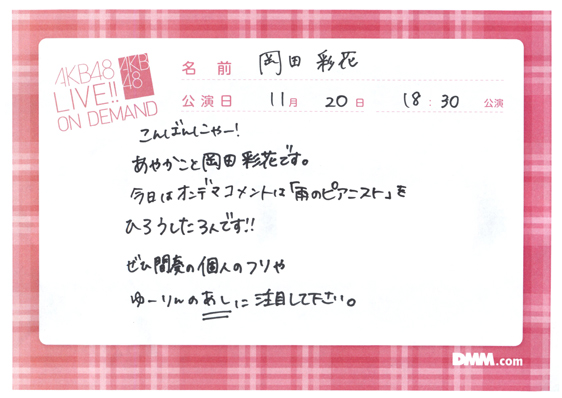 AKB48
LIVE!!
ON DEMAND
AKB
48
名前 岡田 彩花
公演日 11月 20日 18:30 公演
こんばんにゃー!
あやかこと岡田彩花です。
今日はオンデマコメントは「雨のピアニスト」を
ひろうしたろんです!!
ぜひ間奏の個人のフリや
ゆーりんのあしに注目して下さい。
DMM.com